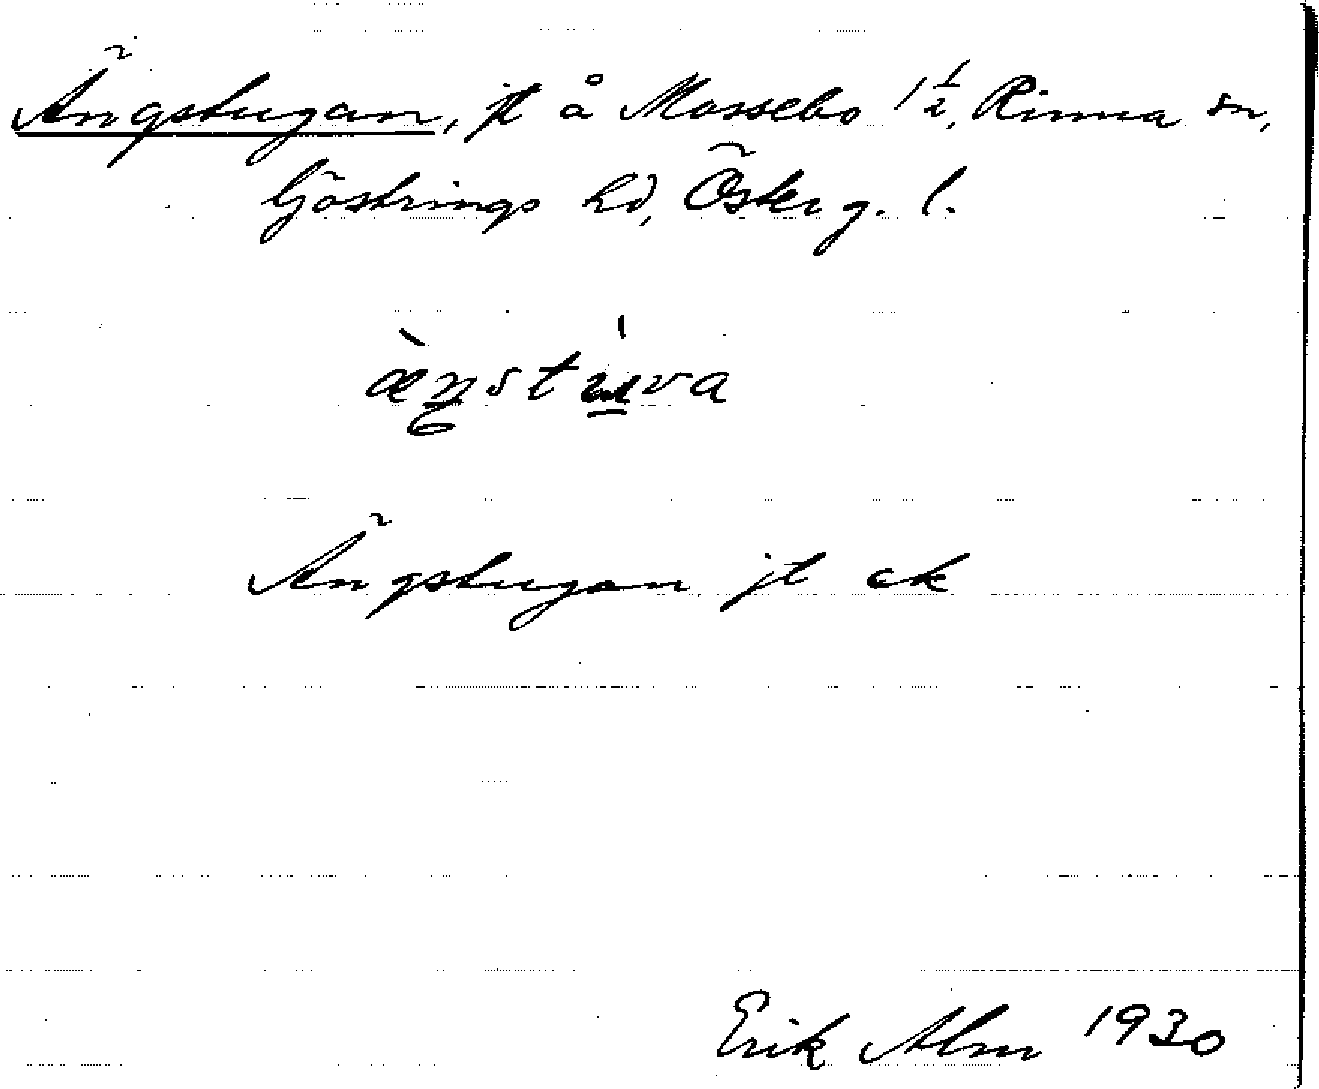 Ängstugan, jt å Mossebo 1 1/2, Rinna sn,
Göstrings hd, Österg. l.
æ̀ŋstu̲̍va
Ängstugan jt ek
Erik Alm 1930